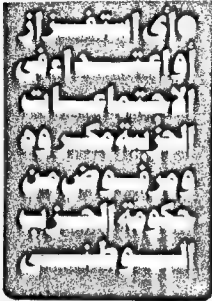 أي استفزاز
أو اعتداء في
الاجتماعات
مكروه
ومرفوض من
حكومة الحزب
الوطني